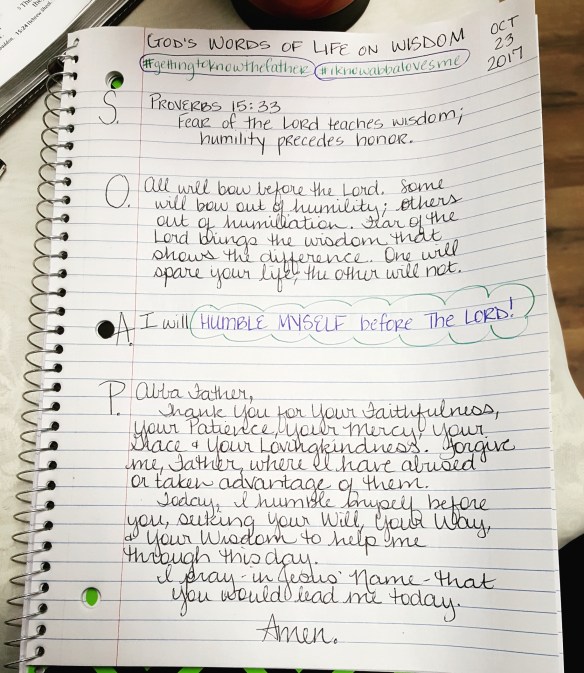 GOD'S WORDS OF LIFE ON WISDOM
OCT
23
2017
#gettingtoknowthefather #iknowabbalovesme
S. PROVERBS 15:33
Fear of the LORD teaches wisdom;
humility precedes honor.
O. All will bow before the Lord. Some
will bow out of humility; others
out of humiliation. Fear of the
Lord brings the wisdom that
shows the difference. One will
spare your life; the other will not.
A. I will HUMBLE MYSELF before The LORD!
P. Abba Father,
Thank You for Your Faithfulness,
Your Patience, Your Mercy, Your
Grace & Your Lovingkindness. Forgive
me, Father, where I have abused
or taken advantage of them.
Today, I humble myself before
you, seeking Your Will, Your Way,
& Your Wisdom to help me
through this day.
I pray - in Jesus' Name - that
You would lead me today.
Amen.